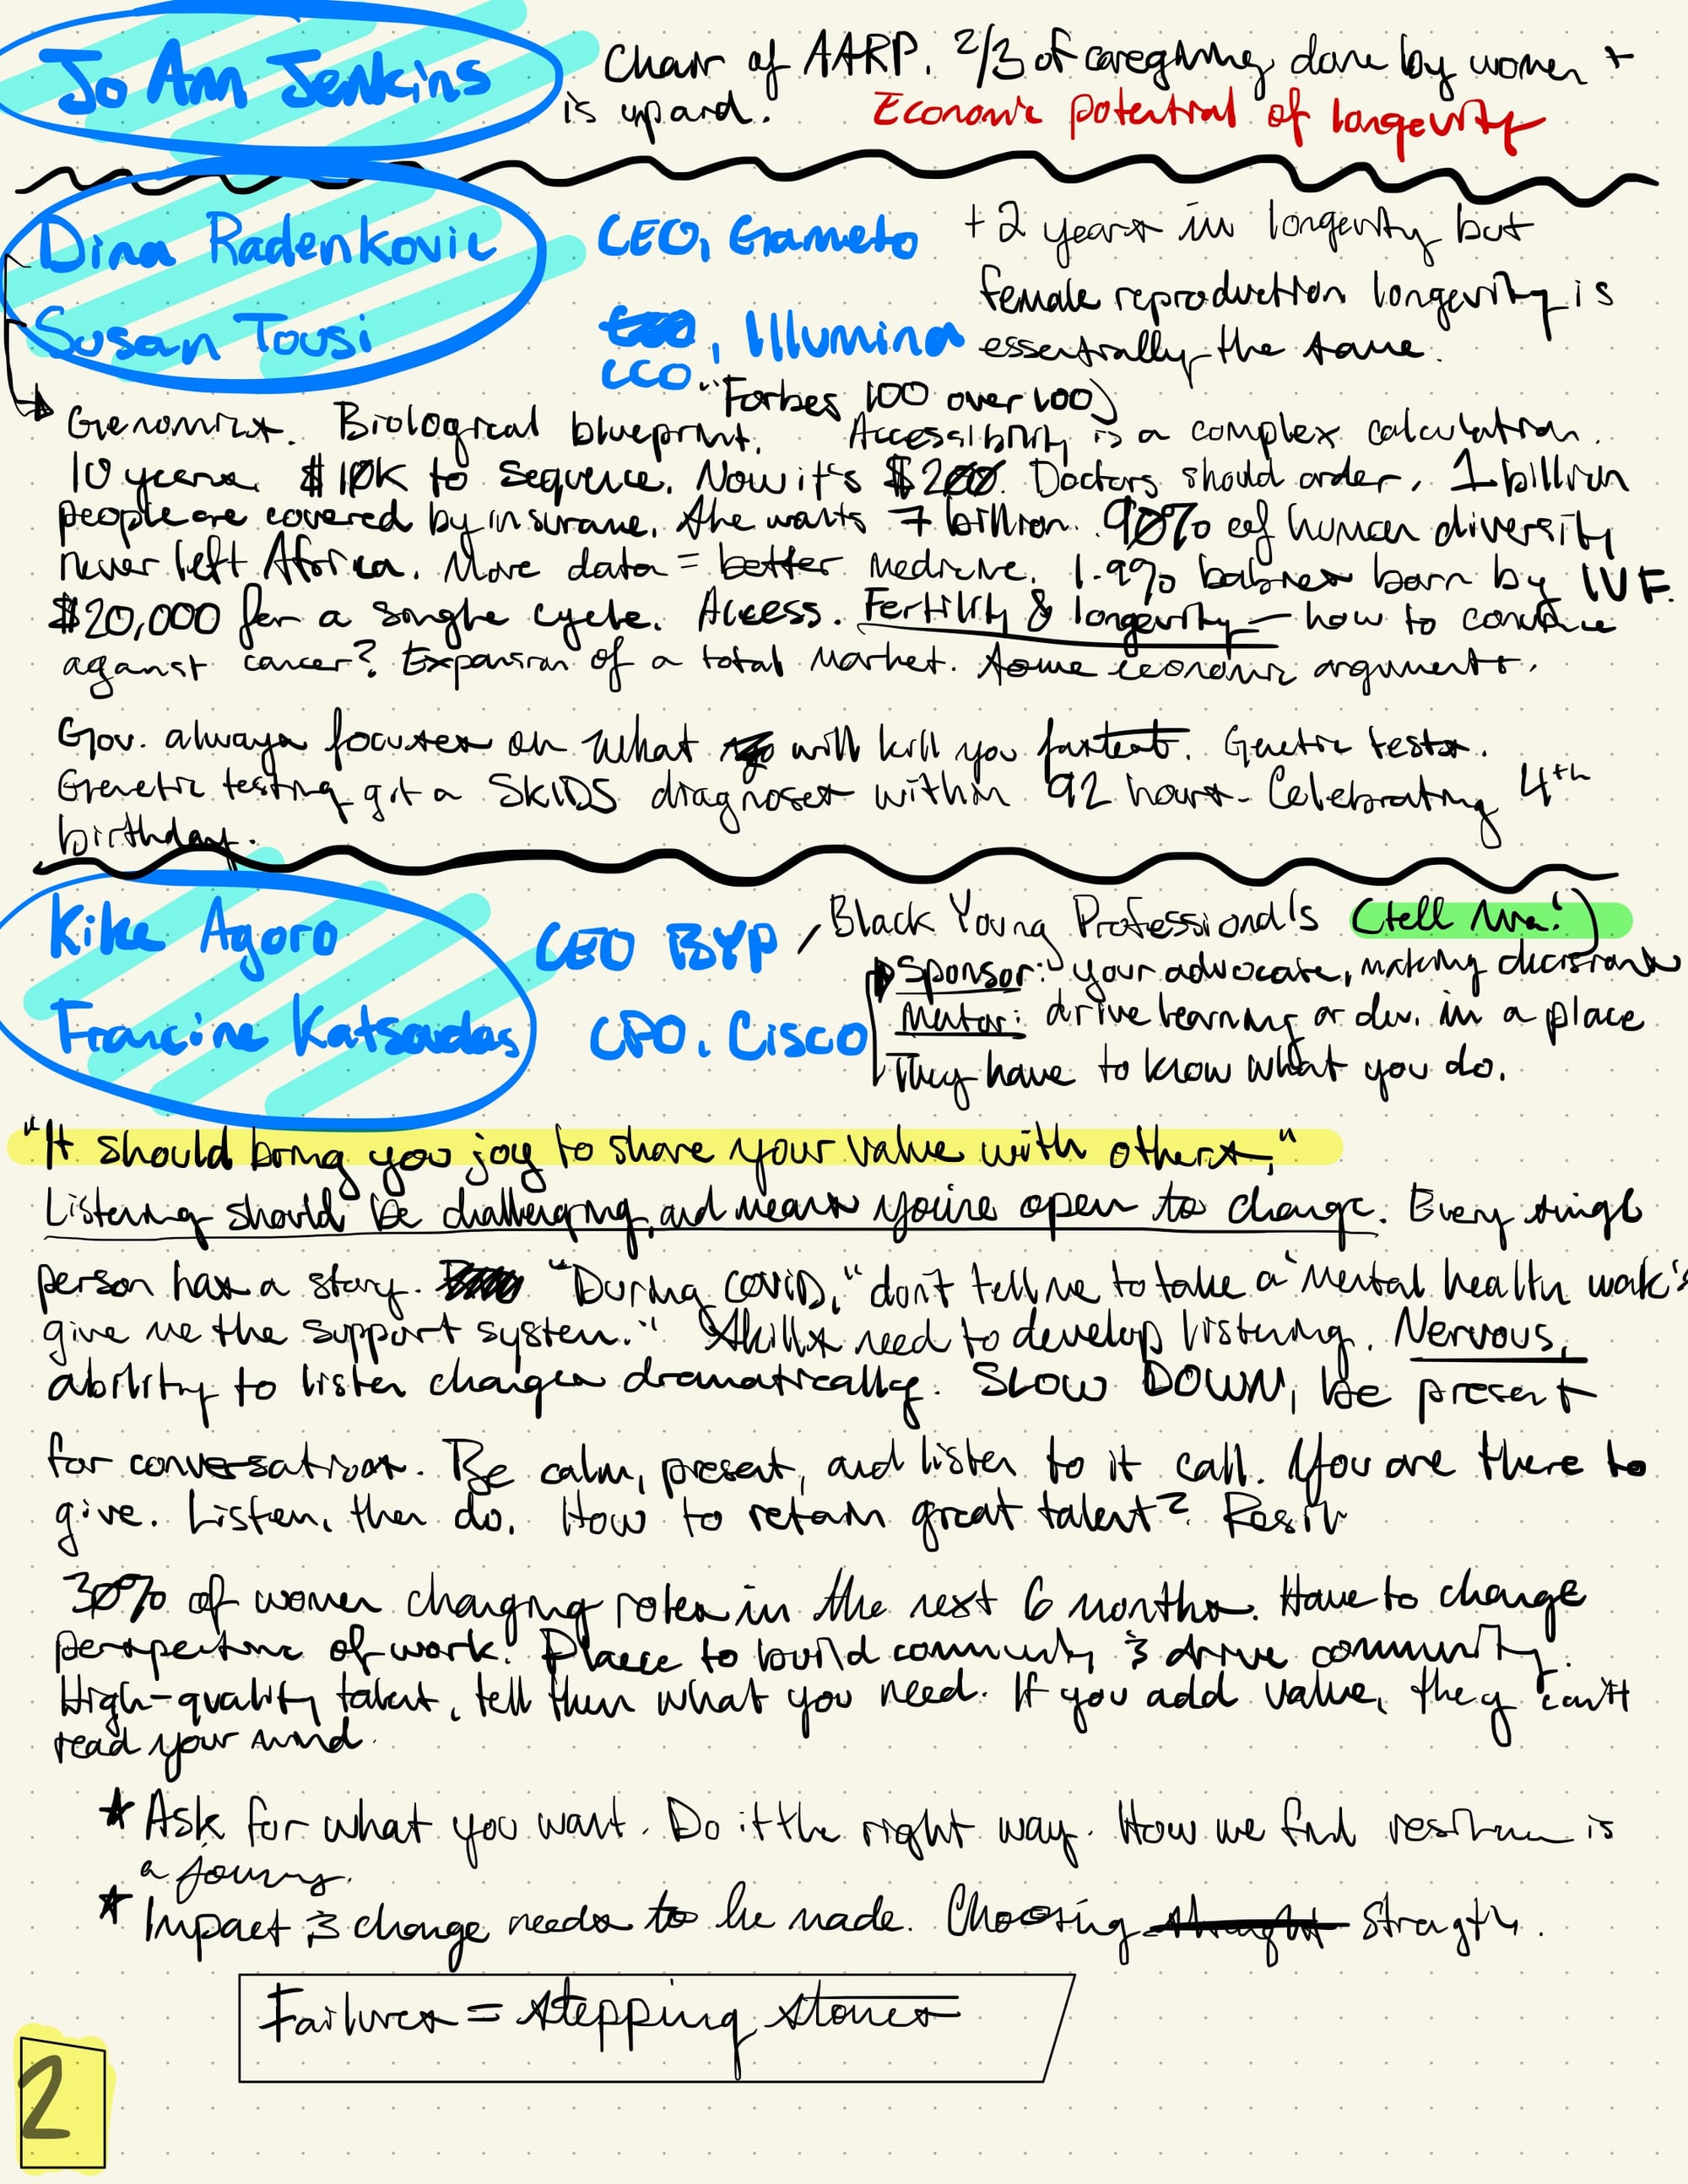 Jo Ann Jenkins
Chair of AARP. 2/3 of caregiving done by women +
is upard. Economic potential of longevity
Dina Radenkovic CEO, Gameto
Susan Tousi CEO, Illumina
CCO
+2 years in longevity but
female reproduction longevity is
essentially the same.
"Forbes 100 over 100)
Genomics. Biological blueprint. Accessibility is a complex calculation.
10 years. $10K to sequence. Now it's $200. Doctors should order. 1 billion
people are covered by insurance. She wants 7 billion. 90% of human diversity
never left Africa. More data = better medicine. 1.9% babies born by IVF.
$20,000 for a single cycle. Access. Fertility & longevity – how to
against cancer? Expansion of a total market. Some economic arguments.
Gov. always focuses on what will kill you fastest. Genetic tests.
Genetic testing got a SKIDS diagnoses within 92 hours - Celebrating 4th
birthday.
Kike Agoro CEO BYP / Black Young Professional's (tell Mra!)
Francine Katsadas CPO, Cisco
Sponsor: your advocate, making decisions
Mentor: drive learning or dev. in a place
They have to know what you do.
"It should bring you joy to share your value with others."
Listening should be challenging, and means you're open to change. Every single
person has a story. "During COVID, "don't tell me to take a 'mental health walk'
give me the support system." Skills need to develop listening. Nervous,
ability to listen changes dramatically. SLOW DOWN, be present
for conversations. Be calm, present, and listen to it call. You are there to
give. Listen, then do. How to retain great talent? Resil
30% of women changing roles in the next 6 months. Have to change
perspective of work. Place to build community & drive community.
High-quality talent, tell them what you need. If you add value, they can't
read your mind.
★ Ask for what you want. Do it the right way. How we find resilience is
a journey.
★ Impact & change needs to be made. Choosing straught strength.
Failures = stepping stones
2